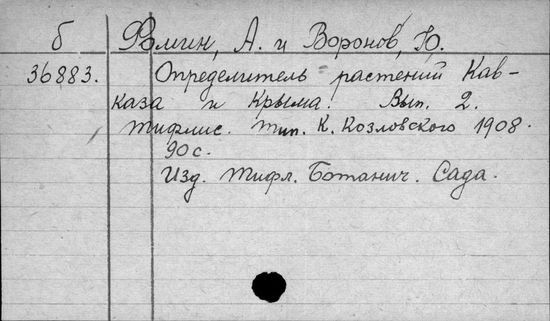 б Фомин, А. и Воронов, Ю.
36883. Определитель растений Кав-
каза и Крыма. Вып. 2.
Тифлис. Тип. К. Козловского 1908.
90 с.
Изд. Тифл. Ботанич. Сада.